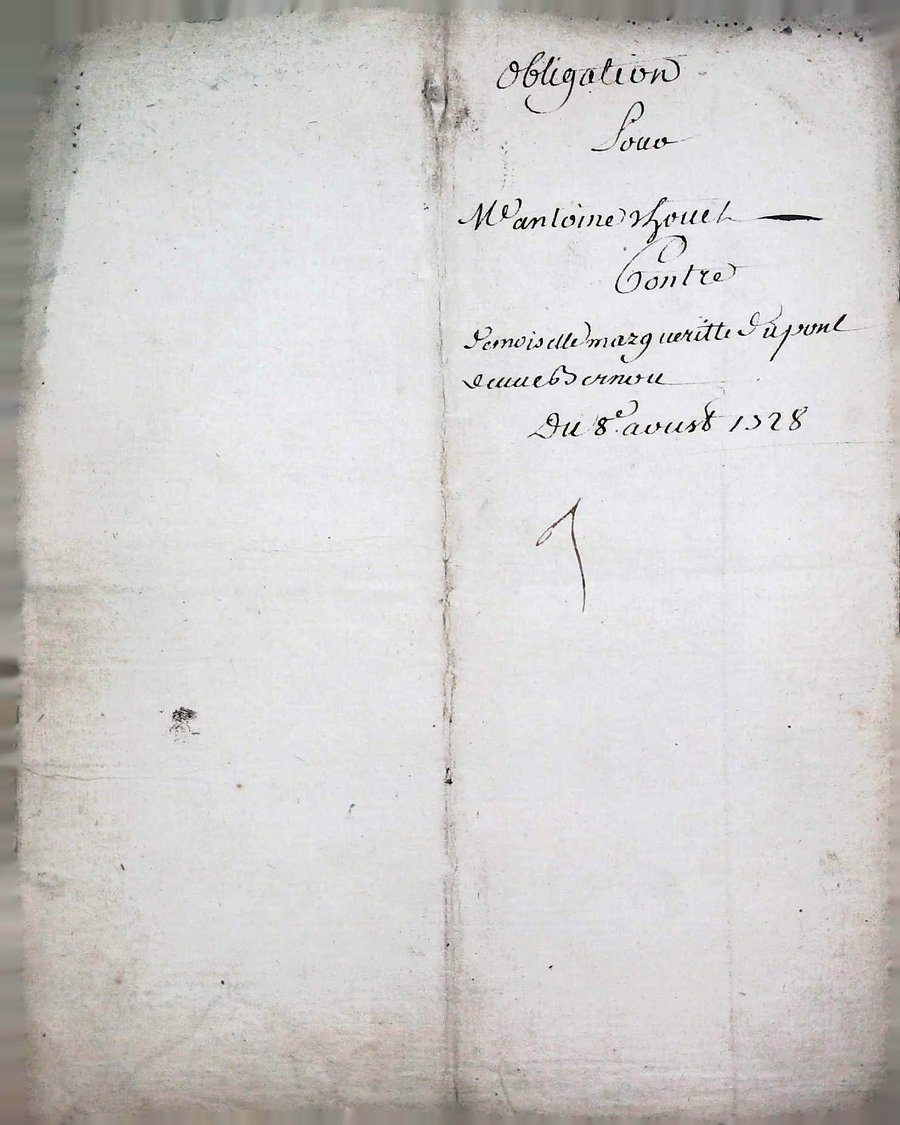 Obligation
Pour
Me antoine rhouet
Contre
demoiselle margueritte Dupont
veuve Bernou
Du 8e. aoust 1728